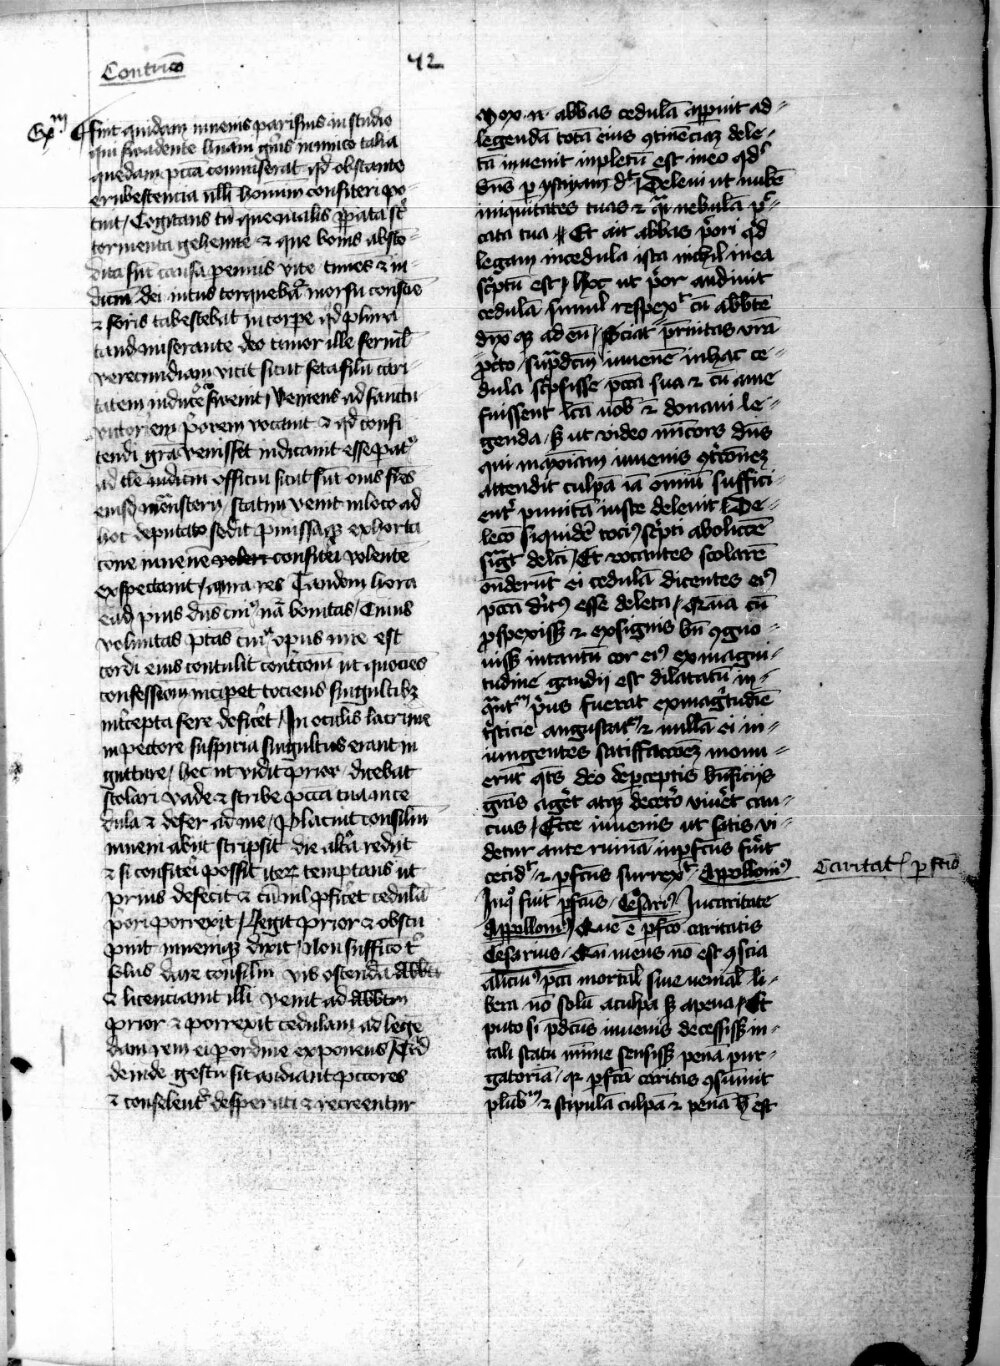 Contricio
42
Exm
Fuit quidam iuuenis parisius in studio
qui suadente humani generis inimico talia
quedam peccata commiserat quod obstante
erubescencia nulli hominum confiteri po-
tuit / Cogitans tamen que malis preparata sunt
tormenta gehenne et que bonis abscon-
dita sunt gaudia perennis vite timens et iu-
dicium dei intus torquebatur morsu consciencie
et foris tabescebat in corpore quid plura
tandem miserante deo timor ille seruilis
verecundiam vicit sicut seta filum cari-
tatem inducens / Veniens ad sanctum
victorem priorem vocauit et quod confi-
tendi gratia venisset indicauit esse paratus
ad tale officium sicut sunt omnes fratres
eiusdem monasterii / statim venit in loco ad
hoc deputato sedit premissaque exhorta
cione iuuenem confiteri volentem
exspectauit / mira res Tandem hora
eadem pius dominus cuius natura bonitas / Cuius
voluntas potestas cuius opus misericordie est
cordi eius contulit contricionem ut quocies
confessionem inciperet tociens singultibus
intercepta fere deficeret / In oculis lacrime
in pectore suspiria singultus erant in
gutture / hec ut vidit prior dicebat
scolari vade et scribe peccata tua in ce
dula et defer ad me / Placuit consilium
iuueni abijt scripsit die altera redijt
et si confiteri possit iterum temptans ut
prius defecit et cum nil proficeret cedulam
priori porrexit / Legit prior et obstu
puit iuuenique dixit / Non sufficio tibi
solus dare consilium vis ostendam abbati
et licenciauit illi venit ad abbatem
prior et porrexit cedulam ad legen
dam rem ei per ordine exponens / Quid
deinde gestum sit audiant peccatores
et consolentur desperati et recreentur
Mox ut abbas cedulam aperuit ad-
legendam totam eius continenciam dele-
tam inuenit inpletum est in eo quod
dominus per ysayam dicit / Deleui ut nubem
iniquitates tuas et quasi nebulam pec-
cata tua Et ait abbas priori quid
legam in cedula ista nichil in ea
scriptum est / hoc ut prior audiuit
cedulam simul respexit cum abbate
dixit que ad eum / Sciat paternitas vestra
pro certo / supradictum iuuenem in hac ce-
dula scripsisse peccata sua et cum a me
fuissent lecta vobis eam donaui le-
genda / sed ut video misericors dominus
qui maximam iuuenis contricionem
attendit culpam iam omnium suffici-
enter punitam iuste deleuit / De-
lecio siquidem tocius scripti abolicionem
signat delicti / Et vocantes scolarem
onderunt ei cedulam dicentes eius
peccata diuinitus esse deleta / Qua cum
prospexisset et ex signis bene cogno-
uisset in tantum cor eius ex magni-
tudine gaudij est dilatatum in-
quantum prius fuerat ex magnitudine
tristicie angustatum et nullam ei in-
iungentes satisfaccionem monu-
erunt quatenus deo de perceptis beneficijs
gracias ageret atque de cetero viueret cau-
cius / Ecce iuuenis ut satis vi-
detur ante ruinam inperfectus fuerit
cecidit et perfectus surrexit Appollonius
Inquit fuit perfectus / Cesarius / In caritate
Appollonius / Que est perfectio caritatis
Cesarius / Cum mens non est conscia
alicuius peccati mortalis siue venialis li-
bera non solum a culpa sed a pena / Et
puto si predictus iuuenis decessisset in-
tali statu minime sensisset penam pur-
gatoriam / quia perfecta caritas consumit
plumbum et stipulam culpam et penam hec est
Caritatis perfectio